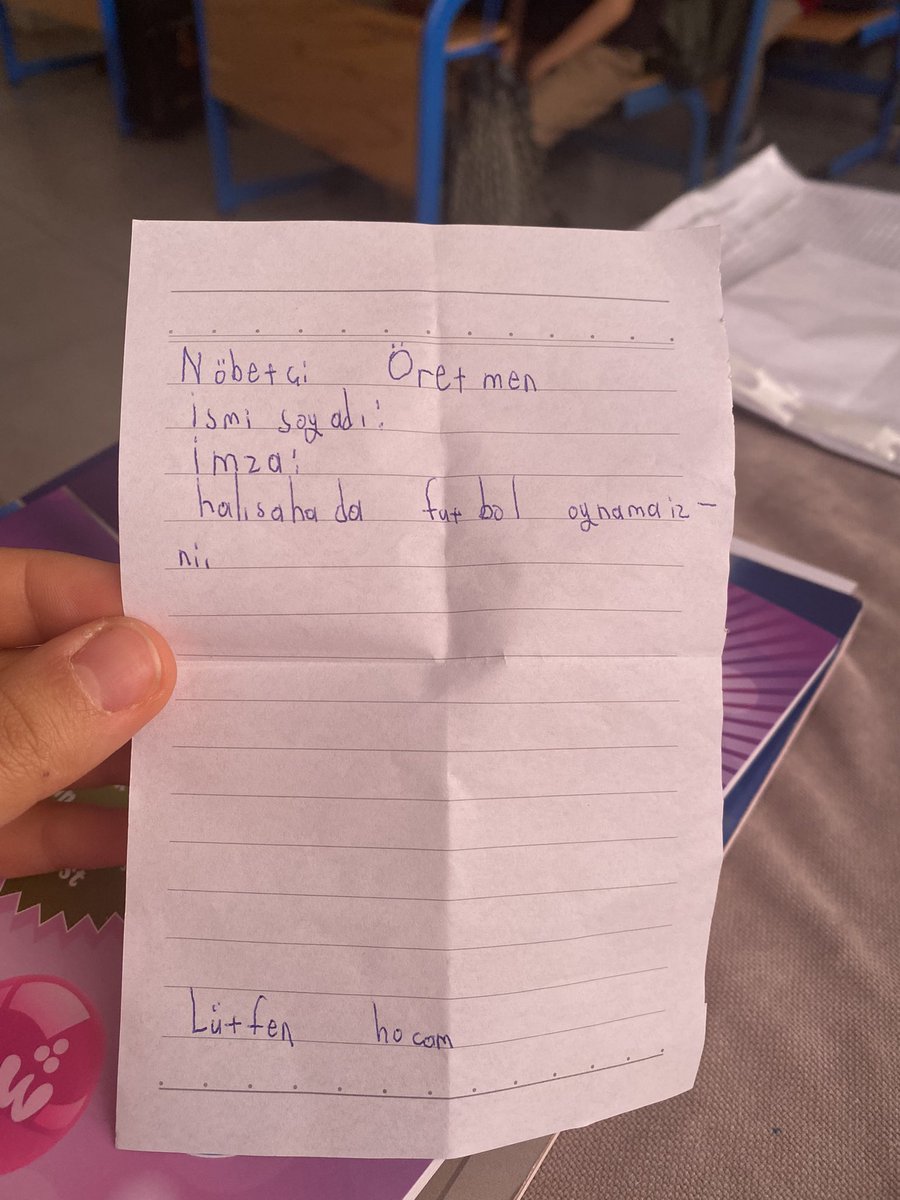 Nöbetçi Öretmen
ismi soyadı:
İmza:
halısahada futbol oynama iz-
ni.
Lütfen hocam
st